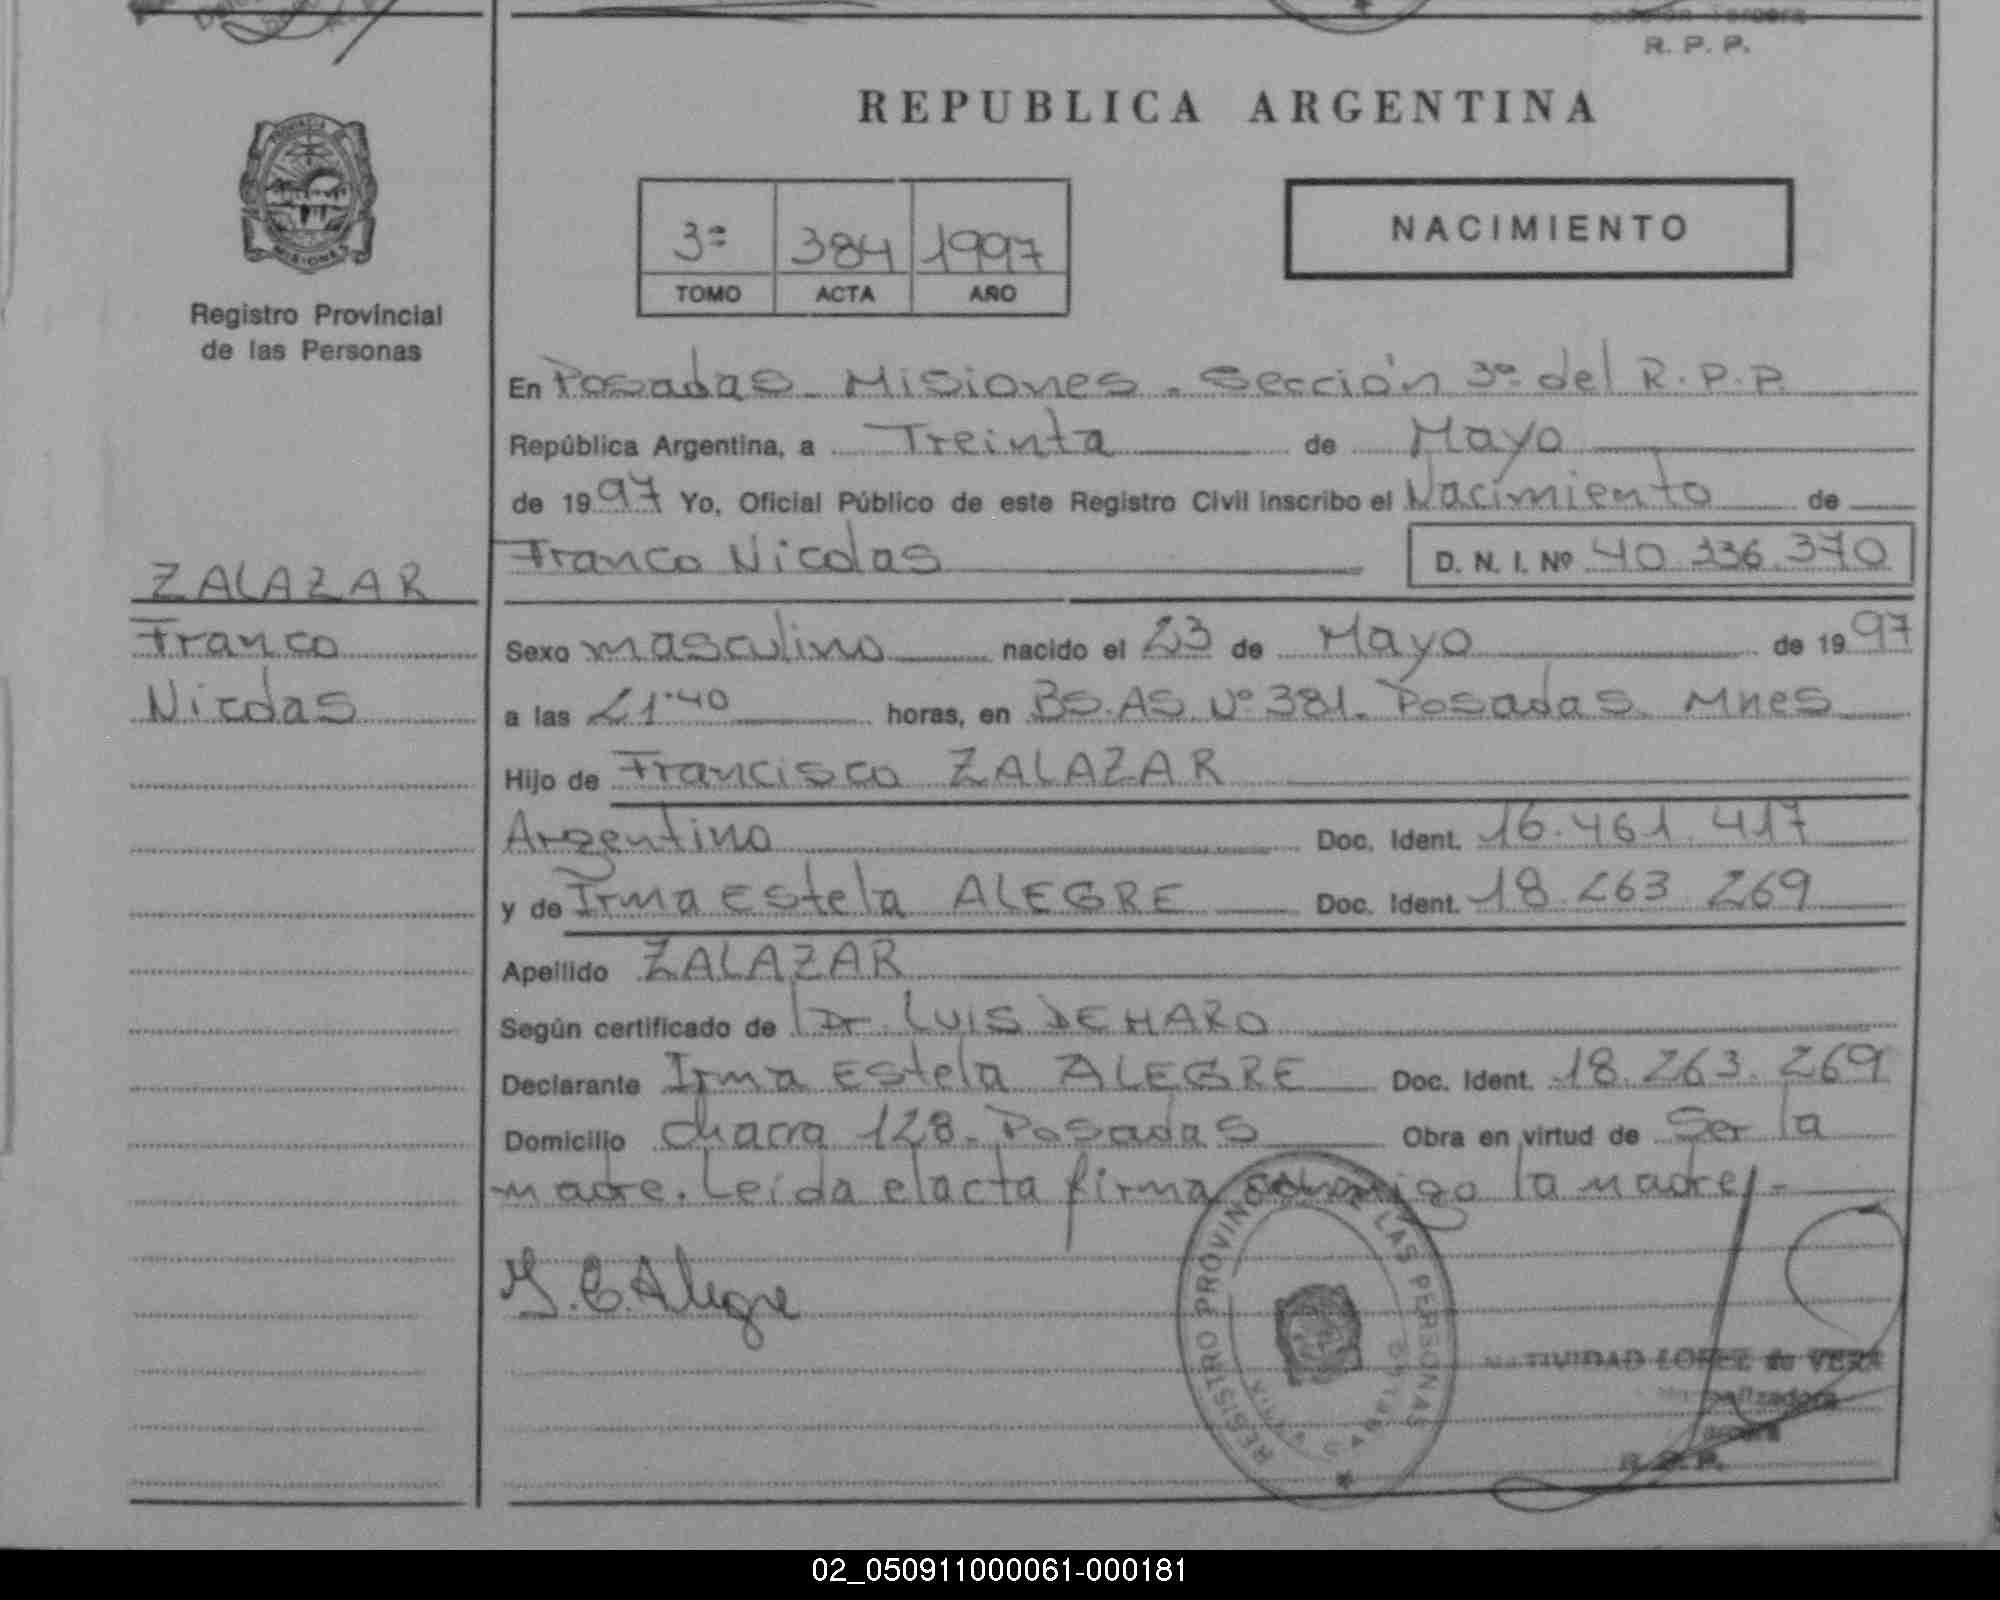 Sección Tercera
R. P. P.
REPUBLICA ARGENTINA
PROVINCIA
MISIONES
Registro Provincial
de las Personas
3ª 384 1997
TOMO ACTA AÑO
NACIMIENTO
En Posadas - Misiones - Sección 3ª del R.P.P.
República Argentina, a Treinta de Mayo
de 1997 Yo, Oficial Público de este Registro Civil inscribo el Nacimiento de
Franco Nicolas D. N. I. Nº 40.336.370
ZALAZAR
Franco
Nicolas
Sexo masculino nacido el 23 de Mayo de 1997
a las 21:40 horas, en BS.AS Nº 381. Posadas. Mnes
Hijo de Francisco ZALAZAR
Argentino Doc. Ident. 16.461.417
y de Irma Estela ALEGRE Doc. Ident. 18.263.269
Apellido ZALAZAR
Según certificado de Dr. LUIS DE HARO
Declarante Irma Estela ALEGRE Doc. Ident. 18.263.269
Domicilio chacra 128 - Posadas Obra en virtud de Ser la
madre. Leída el acta firma conmigo la madre.-
I.E.Alegre
REGISTRO PROVINCIAL DE LAS PERSONAS
NATIVIDAD LOPEZ de VERA
R.P.P.
02_050911000061-000181